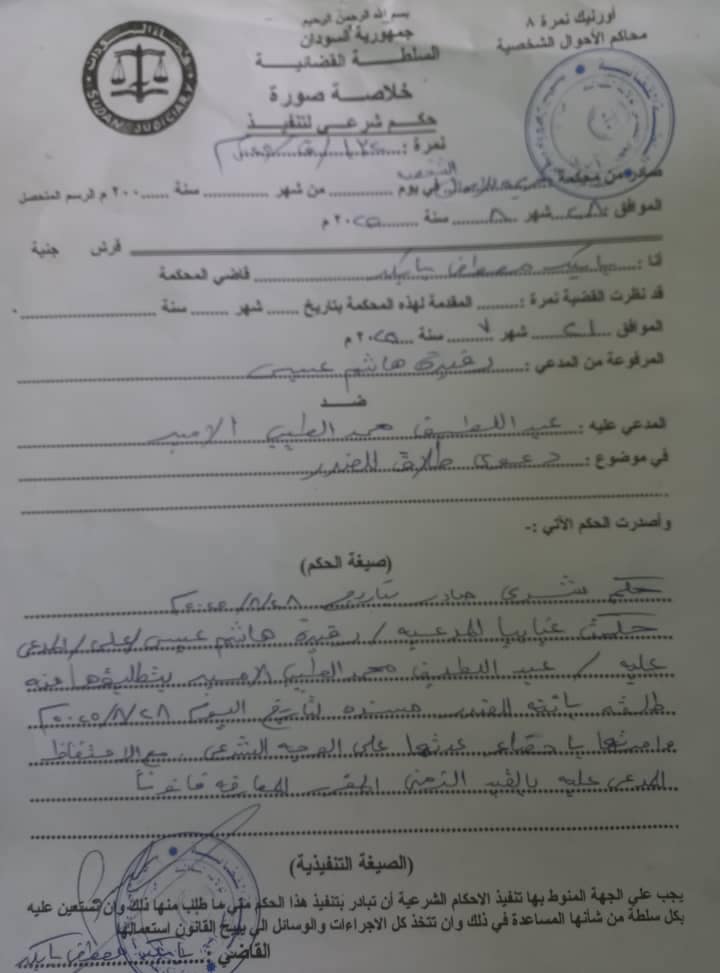 بسم الله الرحمن الرحيم
جمهورية السودان
السلطة القضائية
أورنيك نمرة ٨
محاكم الأحوال الشخصية
SUDAN JUDICIARY
خلاصة صورة
حكم شرعي لتنفيذ
نمرة :
صادر من محكمة الشخصية في يوم ............ من شهر ............ سنة ......٢٠٠ م الرسم المتحصل
الموافق ٢٨ شهر ٨ سنة ٢٠٢٥ م
قرش جنية
أنا : بابكر مصطفى بابكر قاضي المحكمة
قد نظرت القضية نمرة :........ المقدمة لهذه المحكمة بتاريخ ...... شهر ....... سنة ..................
الموافق ٢١ شهر ٧ سنة ٢٠٢٥ م
المرفوعة من المدعي : هاشم عيسى
ضد
المدعي عليه : عبد اللطيف محمد الطيب الأمير
في موضوع : دعوى طلاق للضرر
وأصدرت الحكم الآتي :-
(صيغة الحكم)
حكم شرعي صادر بتاريخ ٢٠٢٥/٨/٢٨
حكمت غيابيا للمدعيه / هاشم عيسى / على / المدعى
عليه / عبد اللطيف محمد الطيب الأمير بتطليقها منه
طلقه بائنه للضرر مسنده لتاريخ اليوم ٢٠٢٥/٨/٢٨
وامرتها باحصاء عدتها على الوجه الشرعي . مع الاحتفاظ
المدعى عليه بالقيد الزمني المقرر للمعارضه قانوناً
(الصيغة التنفيذية)
يجب على الجهة المنوط بها تنفيذ الاحكام الشرعية أن تبادر بتنفيذ هذا الحكم متي ما طلب منها ذلك وان تستعين عليه
بكل سلطة من شأنها المساعدة في ذلك وان تتخذ كل الاجراءات والوسائل التي يبيح القانون استعمالها
القاضي : بابكر مصطفى بابكر